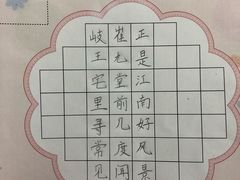 岐王宅里寻常见
崔九堂前几度闻
正是江南好风景